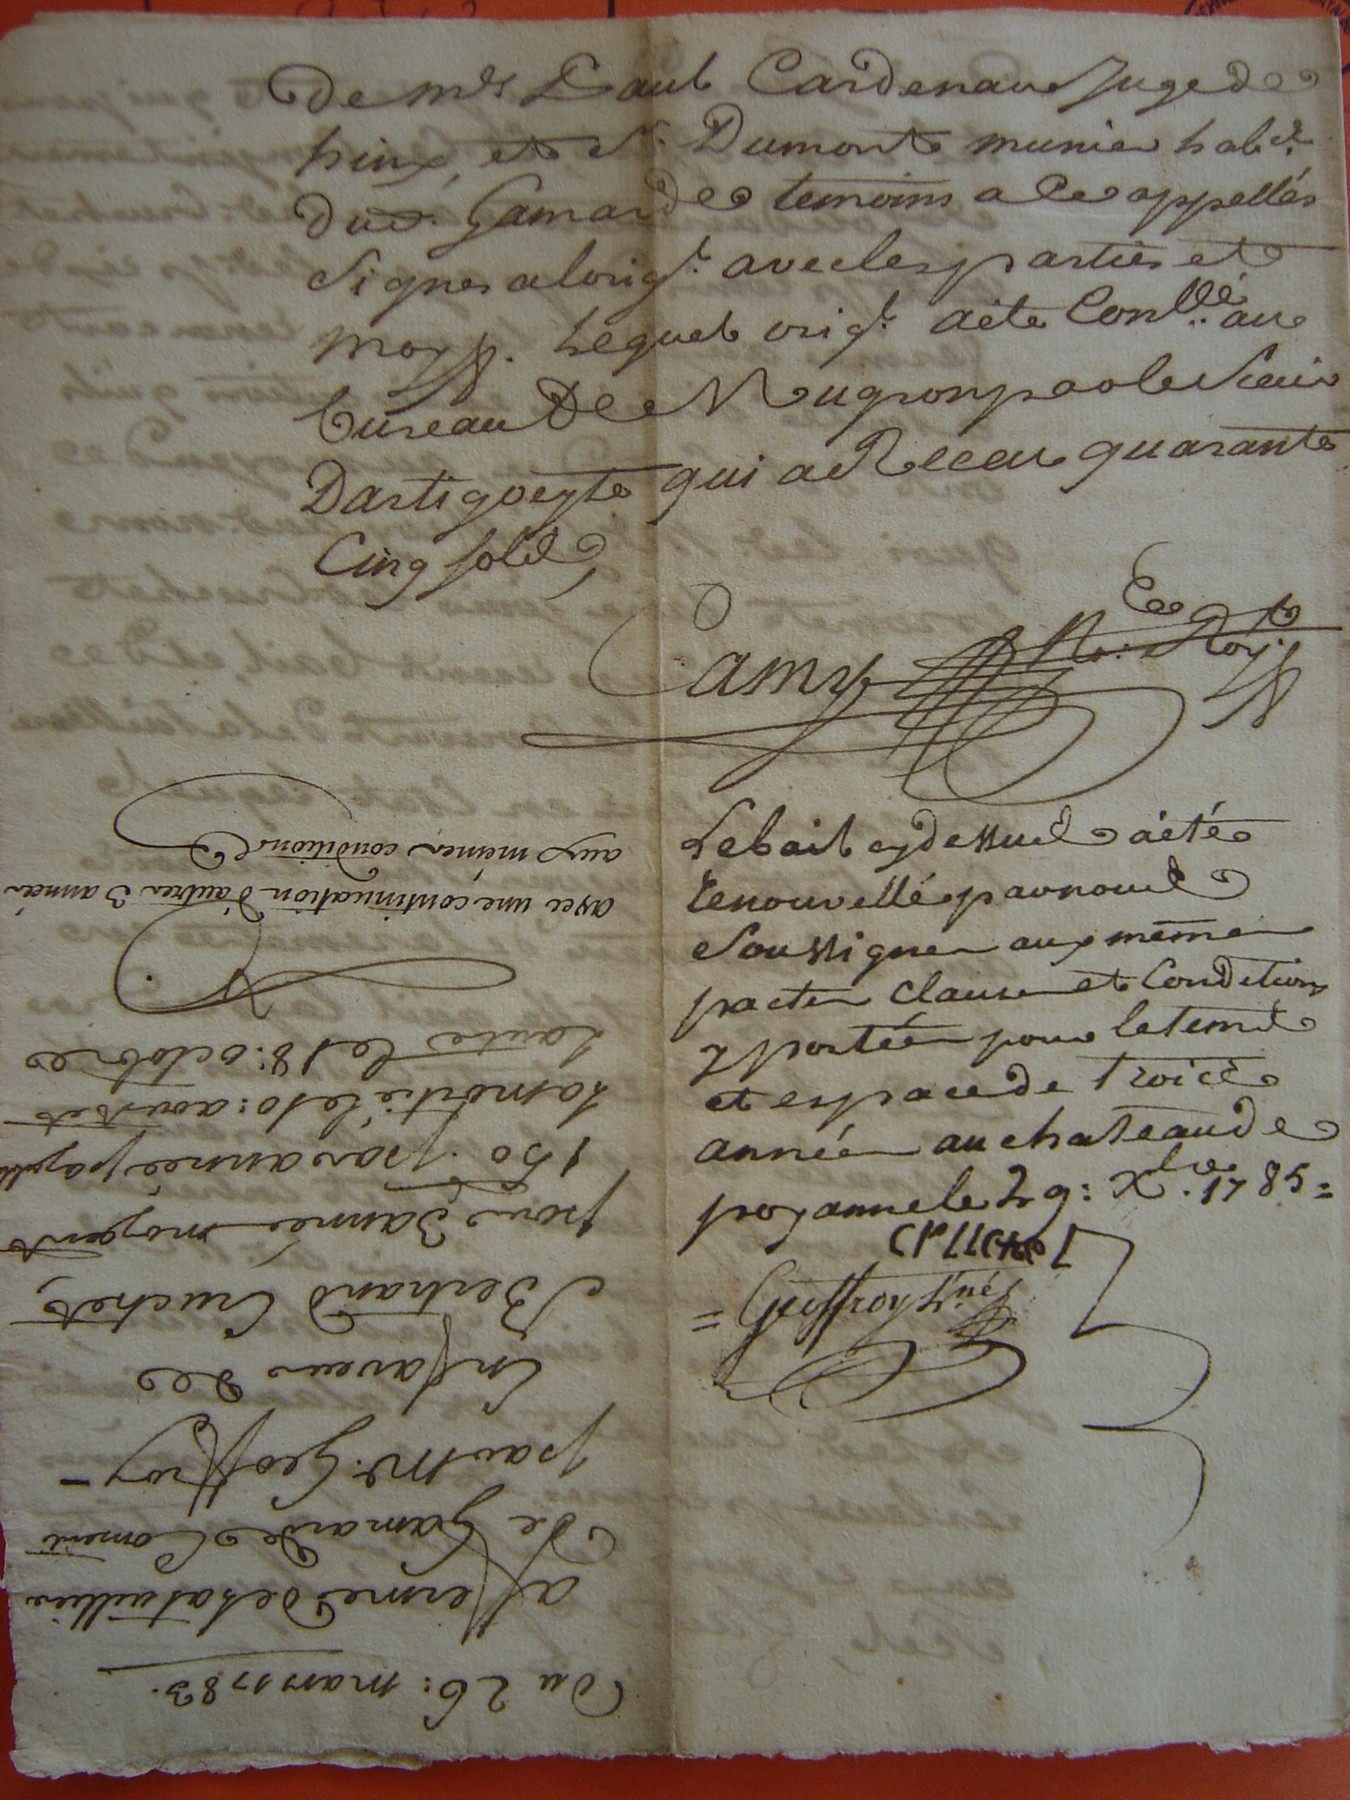 De mr Paul Cardenau Juge de
hinx, et Sr Dumont munier habt.
Dud. Gamarde temoins a ce appellés
Signes alorigl. avec les parties et
moy. Lequel origl. a été Conllé. au
bureau De Mugron par le Sieur
Dartigoeyte qui a Receu quarante
Cinq sols
Exp te
Camy No: Roy.
Le bail cy dessus a été
renouvellé par nous
Soussignes aux memes
pactes clauses et Conditions
y portées pour le tems
et espace de trois
années au chateau de
poyanne le 29: Xbre. 1785=
CrUChet
= Geoffroy
Du 26: mars 1783.
afferme de la taillerie
de Gamarde Coment
par Mr. Geoffroy -
En faveur de
Bertrand Cruchet,
pour 3 années moyent
150 par année payable
La moitié le 10: aoust et
Lautre le 18: octobre
avec une continuation d'autres 3 années
aux memes conditions